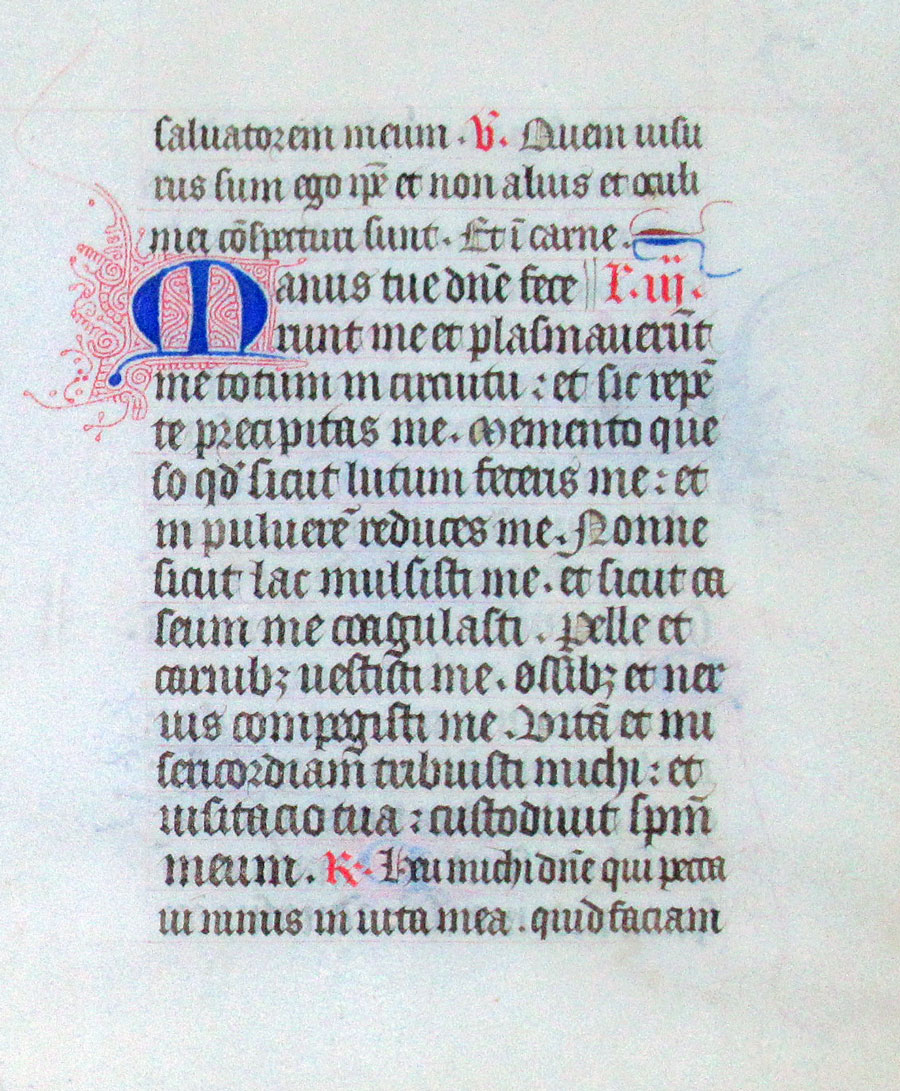 saluatorem meum . V̄. Quem uisu
rus sum ego ip̄e et non alius et oculi
mei cōspecturi sunt. Et ī carne.
Manus tue dn̄e fece l. iij.
runt me et plasmauerūt
me totum in circuitu : et sic repē
te precipitas me. Memento que
so qd' sicut lutum feceris me : et
in puluerē reduces me. Nonne
sicut lac mulsisti me. et sicut ca
seum me coagulasti . Pelle et
carnibꝫ uestisti me. ossibꝫ et ner
uis compegisti me . Vitā et mi
sericordiam̄ tribuisti michi : et
uisitacio tua : custodiuit sp̄m̄
meum. R. Heu michi dn̄e qui pecca
ui nimis in uita mea . quid faciam